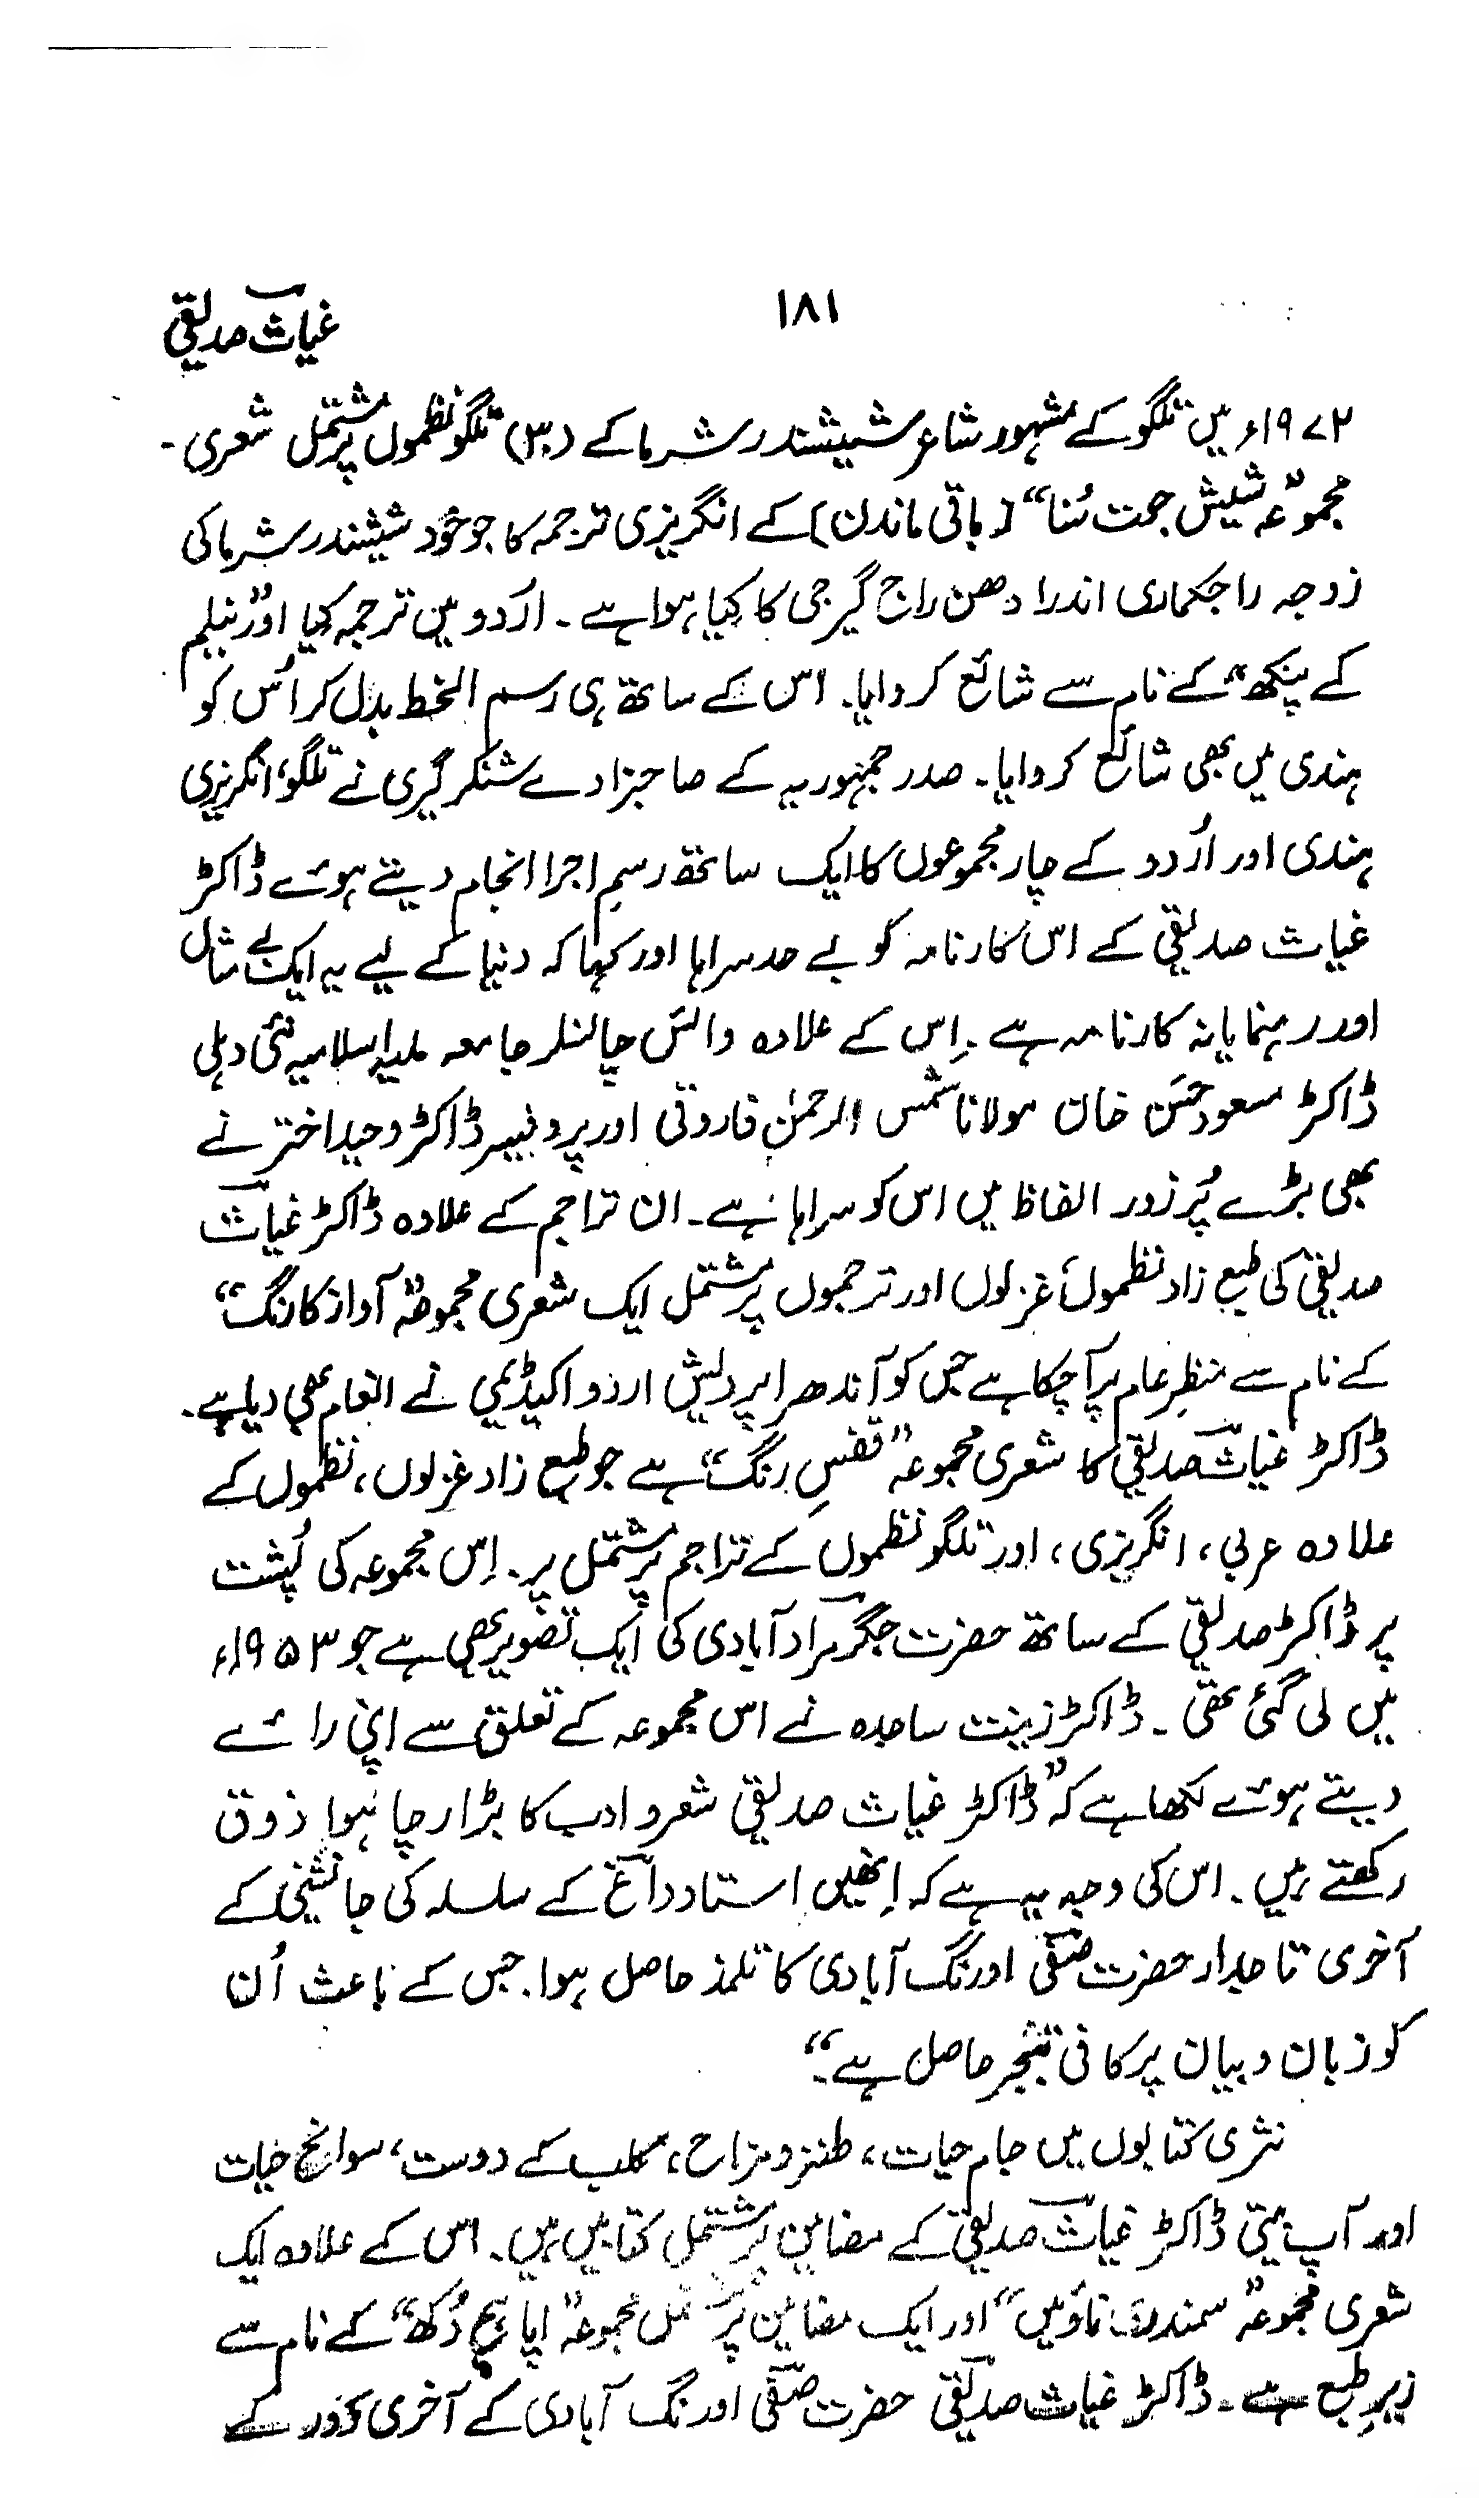 ۱۸۱
غیاث صدیقی
۱۹۷۲ء میں تلگو کے مشہور شاعر شیشندر شرما کے (۳۰) تلگو نظموں پر مشتمل شعری -
مجموعہ ”شیش جمت سُنا“ [باقی ماندن] کے انگریزی ترجمہ کا جو خود شیشندر شرما کی
زوجہ راجکماری اندرا دھن راج گیر جی کا کیا ہوا ہے۔ اردو میں ترجمہ کیا اور ”نیلم
کے پنکھ“ کے نام سے شائع کروایا۔ اس کے ساتھ ہی رسم الخط بدل کر اُس کو
ہندی میں بھی شائع کروایا۔ صدر جمہوریہ کے صاحبزادے شنکر گیری نے تلگو، انگریزی
ہندی اور اُردو کے چار مجموعوں کا ایک ساتھ رسمِ اجرا انجام دیتے ہوئے ڈاکٹر
غیاث صدیقی کے اس کارنامہ کو بے حد سراہا اور کہا کہ دنیا کے لیے یہ ایک بے مثال
اور رہنمایانہ کارنامہ ہے۔ اِس کے علاوہ وائس چانسلر جامعہ ملیہ اسلامیہ نئی دہلی
ڈاکٹر مسعود حسن خان مولانا شمس الرحمٰن فاروقی اور پروفیسر ڈاکٹر وحید اختر نے
بھی بڑے پُر زور الفاظ میں اس کو سراہا ہے۔ ان تراجم کے علاوہ ڈاکٹر غیاث
صدیقی کی طبع زاد نظموں، غزلوں اور ترجموں پر مشتمل ایک شعری مجموعہ ”آواز کا رنگ“
کے نام سے منظرِ عام پر آچکا ہے جس کو آندھرا پردیش اردو اکیڈیمی نے انعام بھی دیا ہے۔
ڈاکٹر غیاث صدیقی کا شعری مجموعہ ”قفسِ رنگ“ ہے جو طبع زاد غزلوں، نظموں کے
علاوہ عربی، انگریزی، اور تلگو نظموں کے تراجم پر مشتمل پر۔ اِس مجموعہ کی پُشت
پر ڈاکٹر صدیقی کے ساتھ حضرت جگر مرادآبادی کی ایک تصویر بھی ہے جو ۱۹۵۳ء
میں لی گئی تھی۔ ڈاکٹر زینت ساجدہ نے اس مجموعہ کے تعلق سے اپنی رائے
دیتے ہوئے لکھا ہے کہ ”ڈاکٹر غیاث صدیقی شعر و ادب کا بڑا رچا ہوا ذوق
رکھتے ہیں۔ اس کی وجہ یہ ہے کہ اِنھیں استاد داغ کے سلسلہ کی جانشینی کے
آخری تاجدار حضرت صفی اورنگ آبادی کا تلمذ حاصل ہوا۔ جس کے باعث اُن
کو زبان و بیان پر کافی تبحر حاصل ہے۔“
نثری کتابوں میں جام حیات، طنز و مزاح، کلب کے دوست، سوانح حیات
اور آپ بیتی ڈاکٹر غیاث صدیقی کے مضامین پر مشتمل کتابیں ہیں۔ اس کے علاوہ ایک
شعری مجموعہ ”سمندر، ناؤ میں“ اور ایک مضامین پر مشتمل مجموعہ ”اپاہج دُکھ“ کے نام سے
زیرِ طبع ہے۔ ڈاکٹر غیاث صدیقی حضرت صفی اورنگ آبادی کے آخری دَور کے